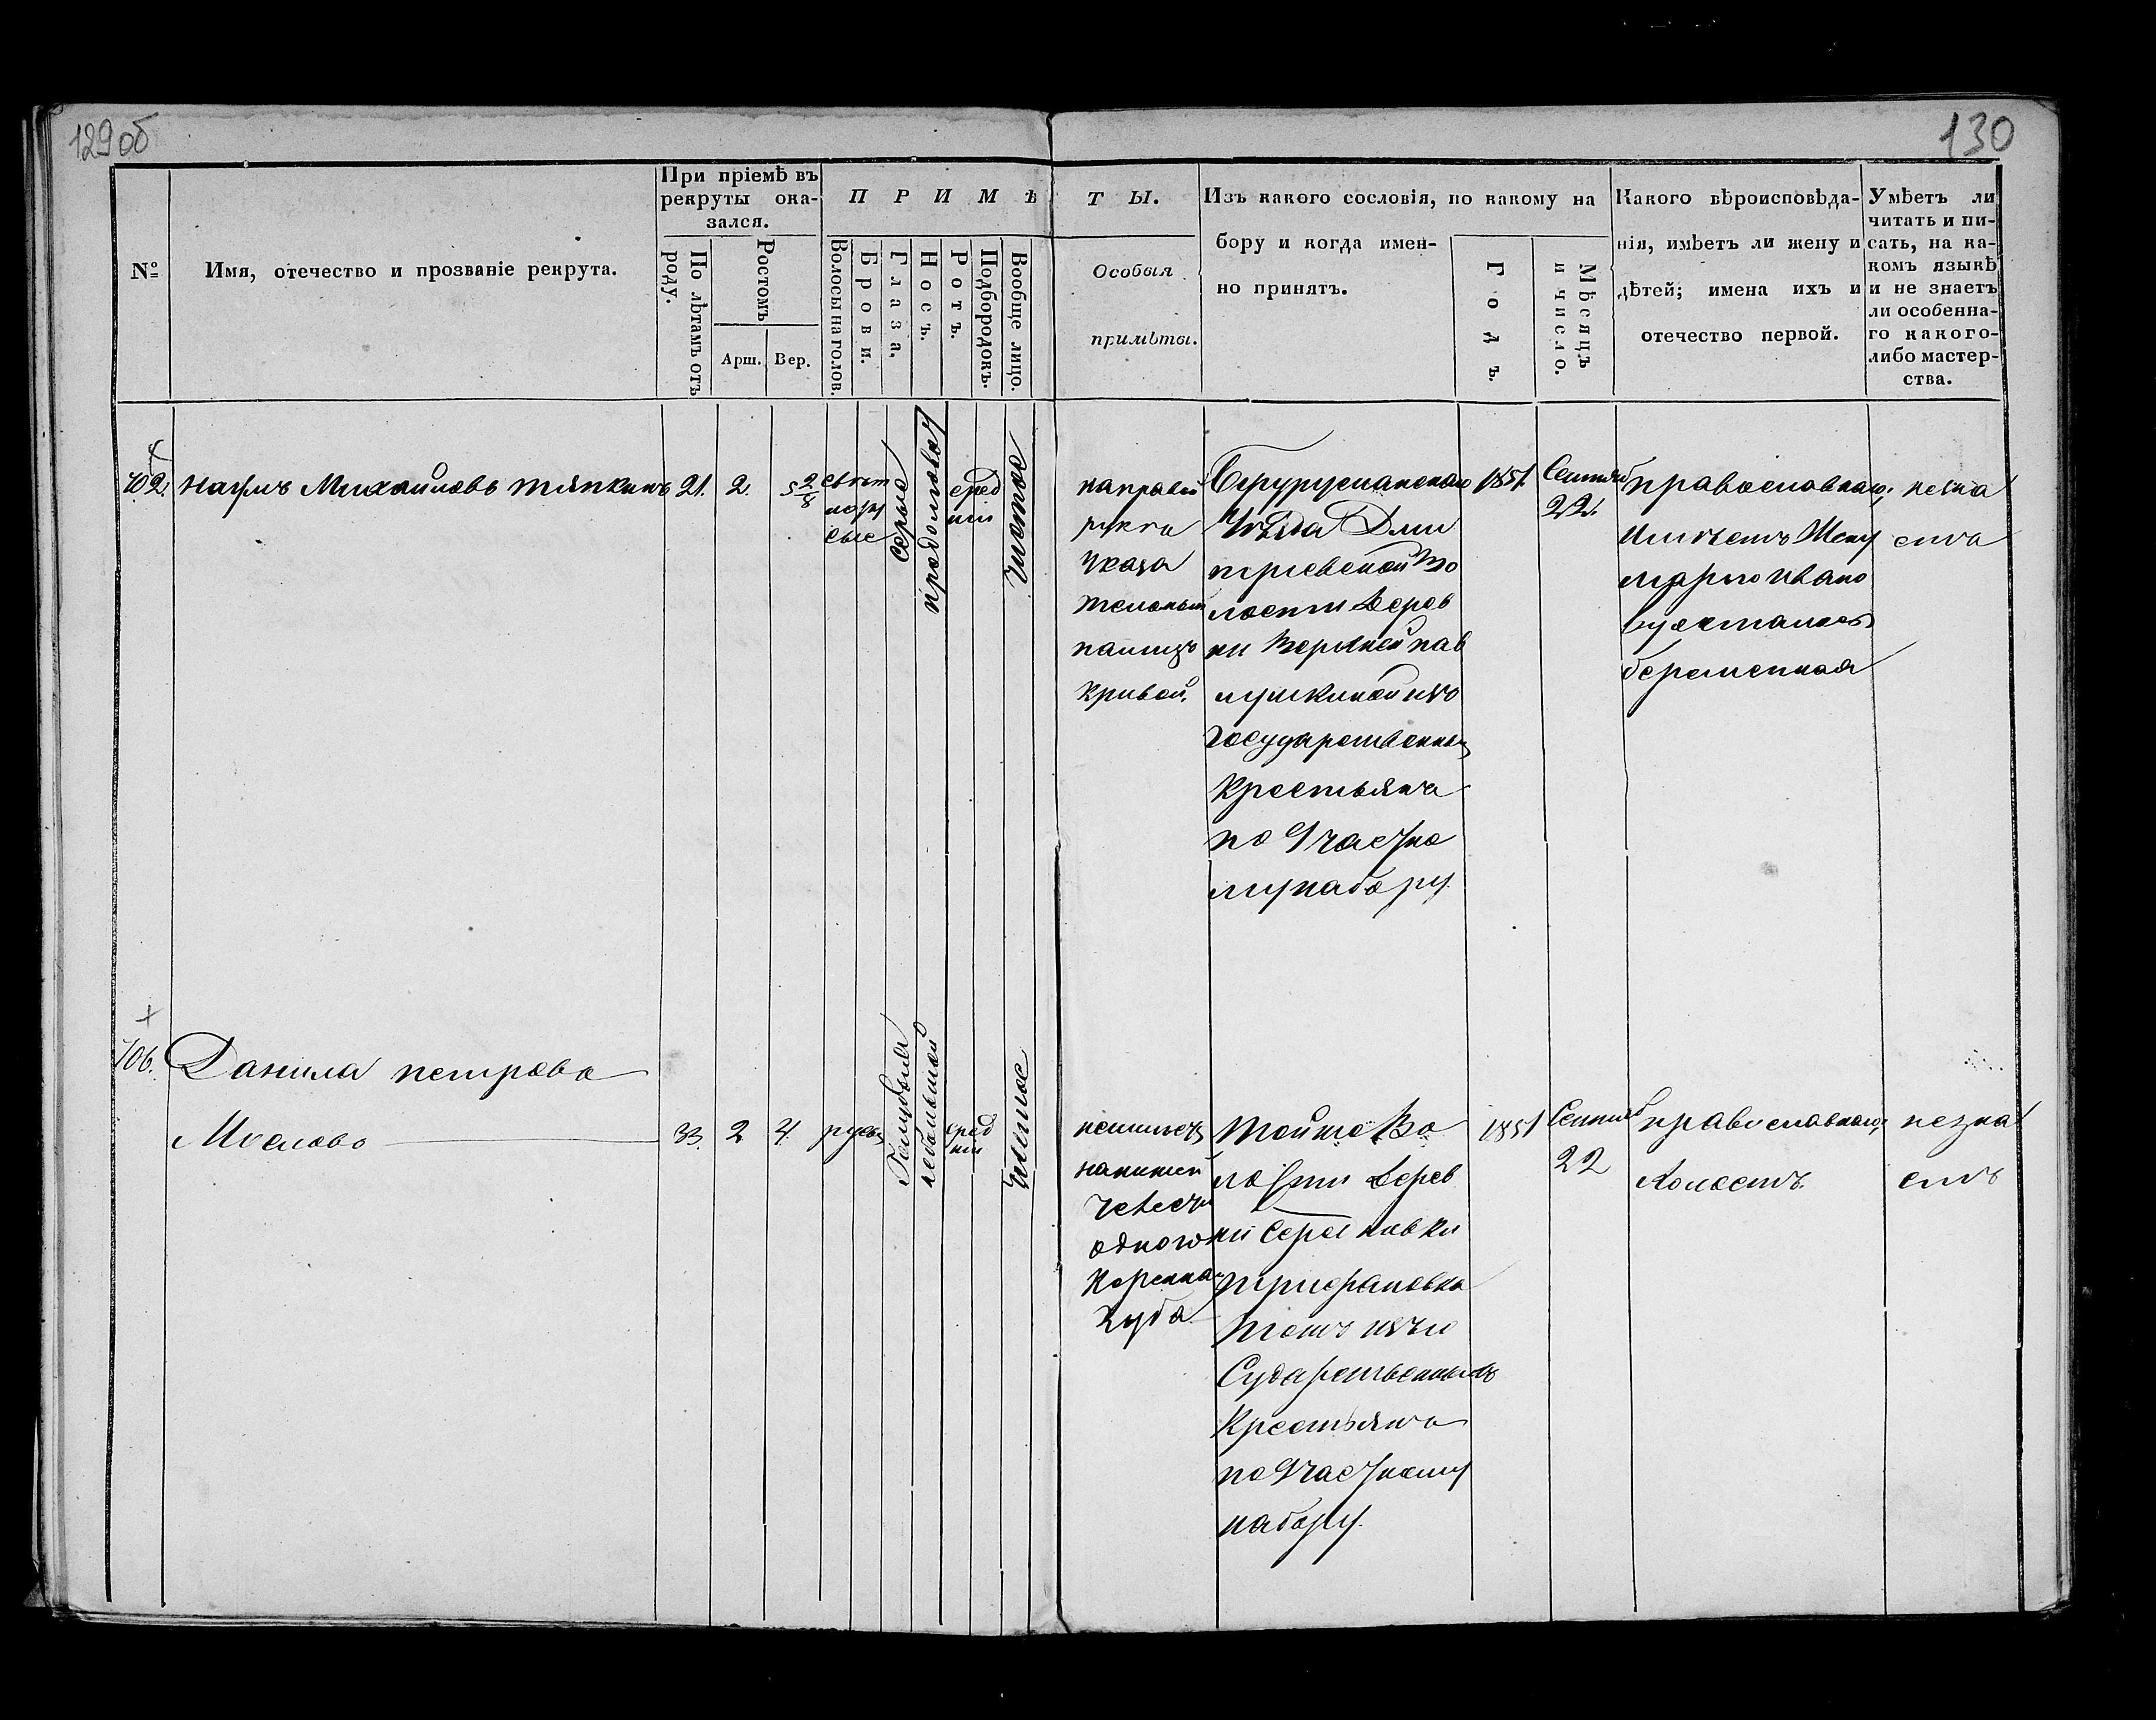 129 об
130
№
Имя, отечество и прозваніе рекрута.
При пріемѣ въ
рекруты ока-
зался.
По лѣтамъ отъ
роду.
Ростомъ
Арш.
Вер.
ПРИМѢ
Волосы на голов.
Брови.
Глаза.
Носъ.
Ротъ.
Подбородокъ.
Вообще лицо.
ТЫ.
Особыя
примѣты.
Изъ какого сословія, по какому на
бору и когда имен-
но принятъ.
Годъ.
Мѣсяцъ
и число.
Какого вѣроисповѣда-
нія, имѣетъ ли жену и
дѣтей; имена ихъ и
отечество первой.
Умѣетъ ли
читать и пи-
сать, на ка-
комъ языкѣ
и не знаетъ
ли особенна-
го какого-
либо мастер-
ства.
102.
Наумъ Михайловъ Тяпкинъ
21.
2.
5 2/8
свѣт
лору
сые
серые
продолговат
сред
ній
чистое
на правой
руки
указа
тельный
палецъ
кривой.
Бузулускаго
Уѣзда Дми
тріевской Во
лости Дерев
ни Верхней пав
лушкиной изъ
Государственных
Крестьянъ
по Частно
му набору.
1851.
Сентяб
22.
православнаго,
Имѣетъ Жену
Марью Ивано
ву осталась
беременная
незна
етъ
106.
Данила петровъ
Мословъ
33.
2
4.
русы
Голубыя
небольшой
сред
ній
чистое
неимѣетъ
нанижней
челюсти
одного
Кореннаго
Зуба
Тойже Во
лости Дерев
ни
Трифановка
тожъ изъ го
Сударственныхъ
Крестьянъ
по Частному
набору.
1851
Сентяб
22
православнаго,
Холостъ.
незна
етъ